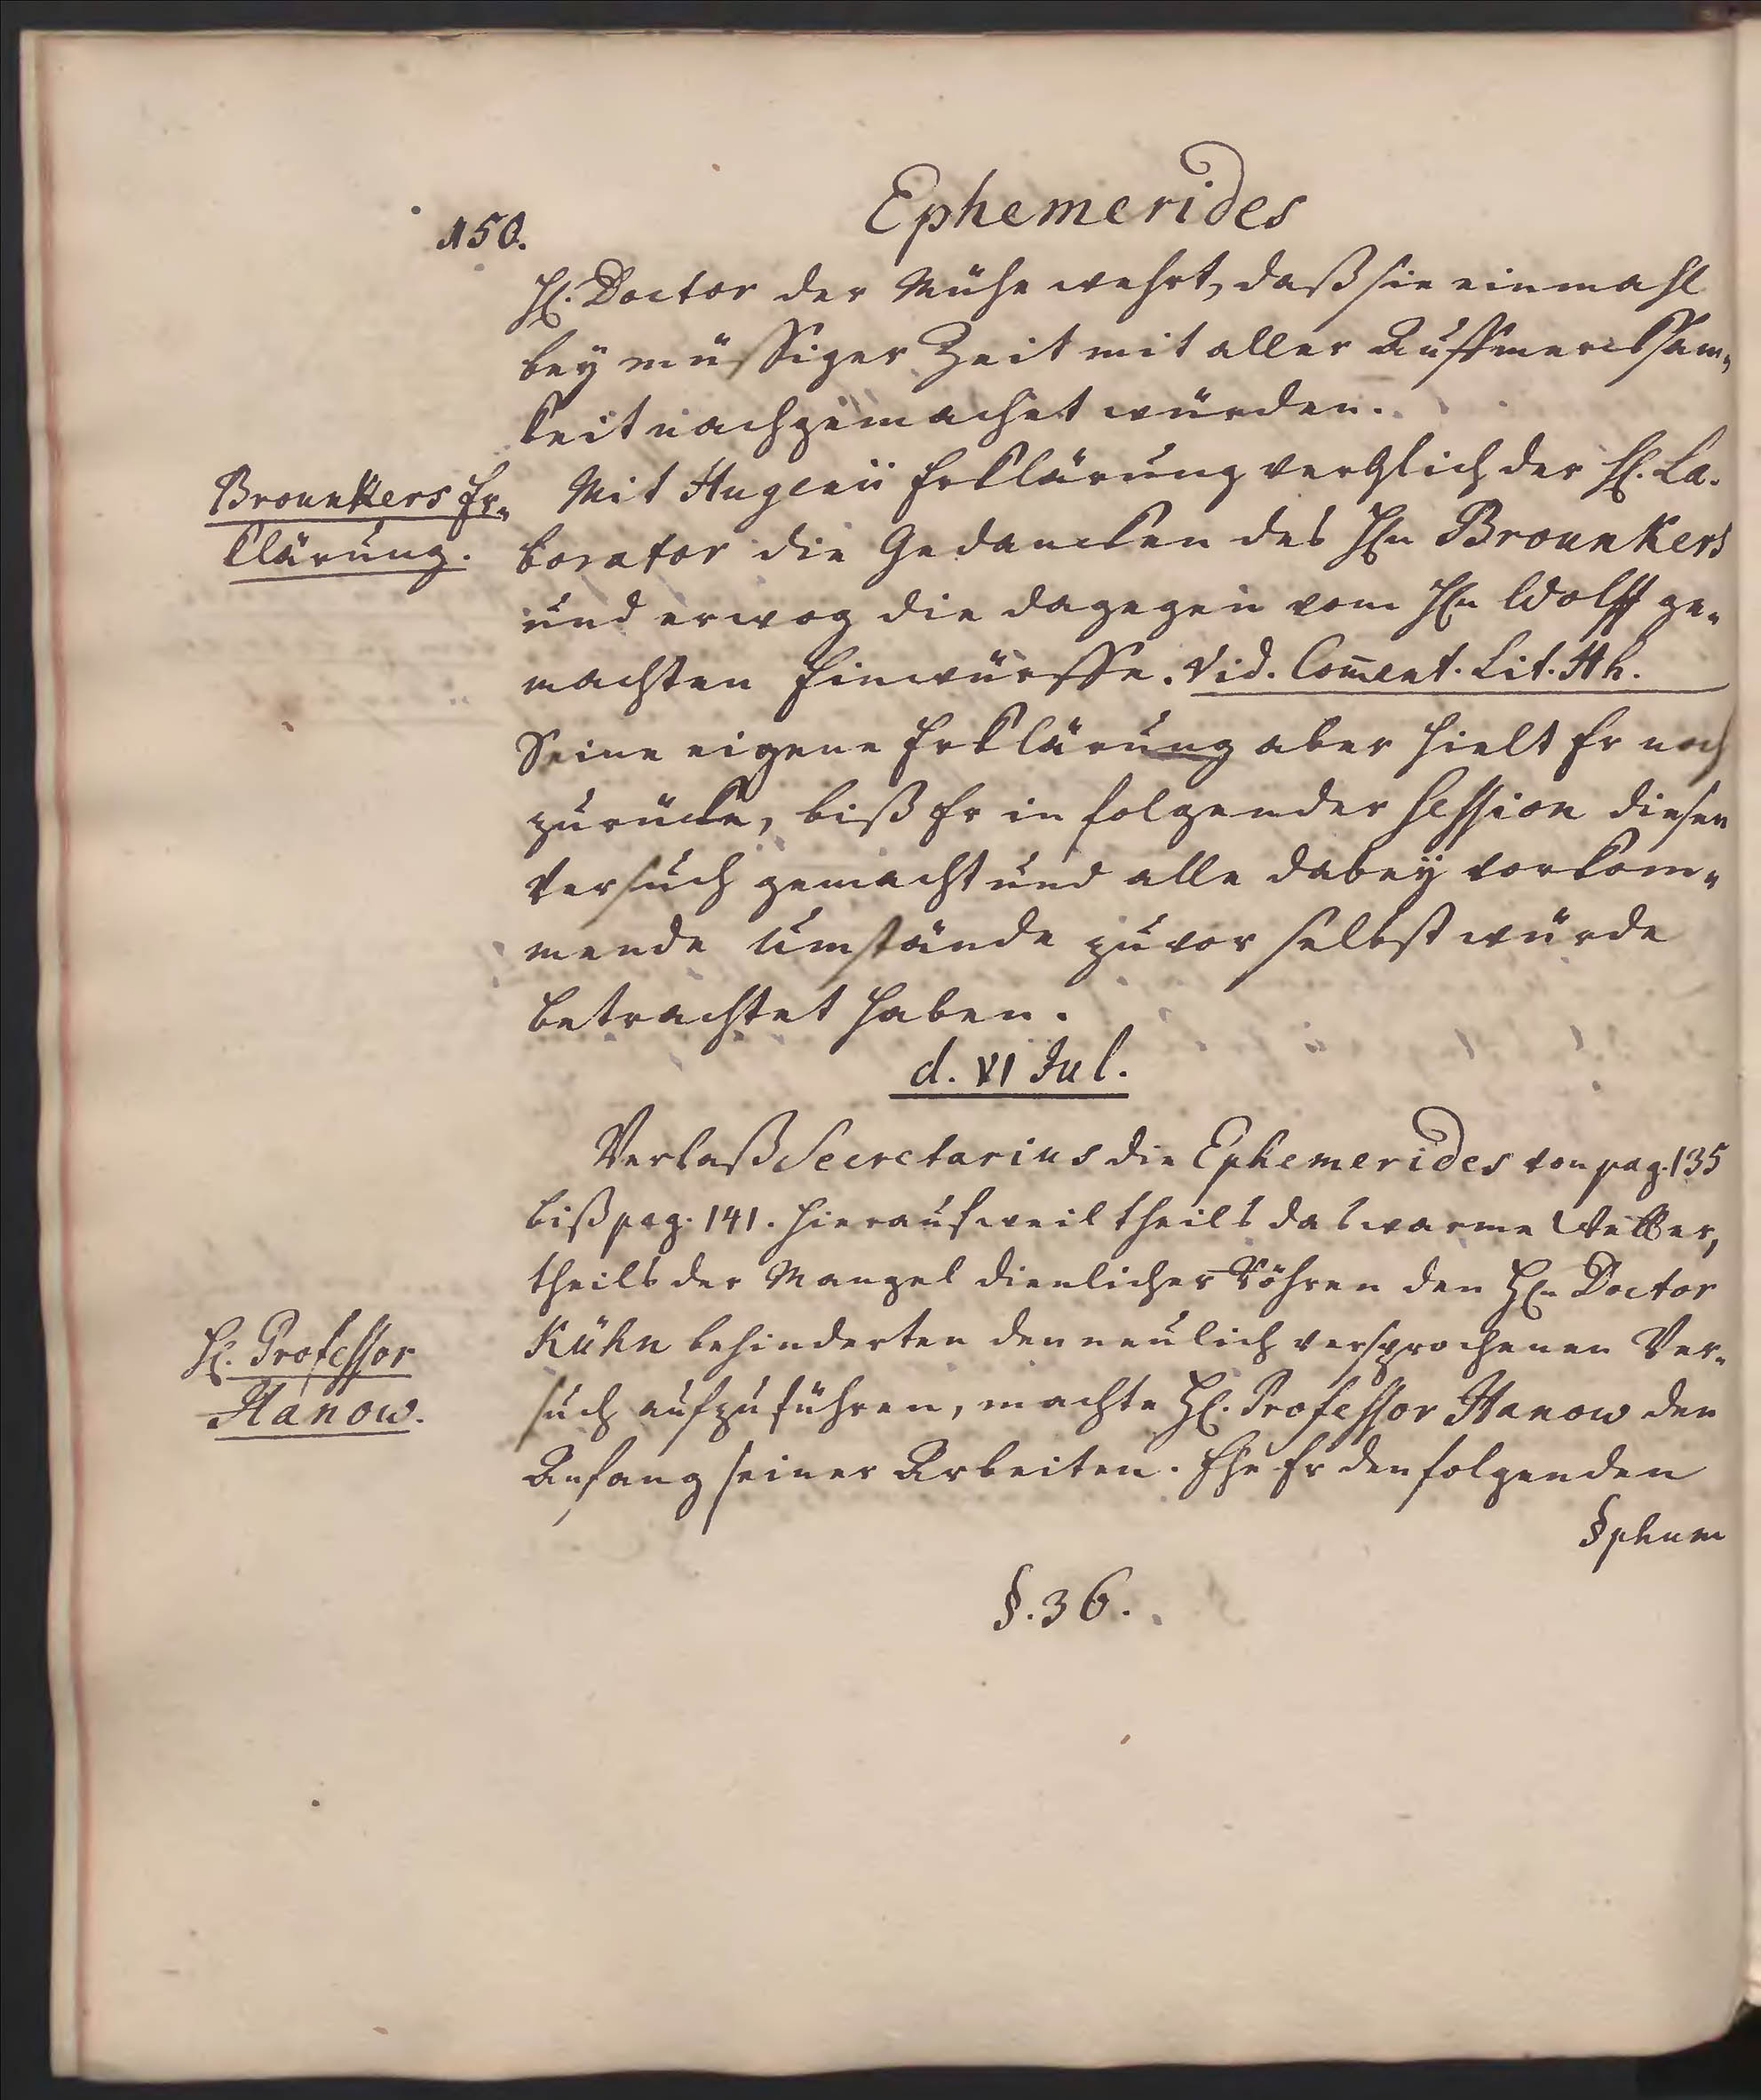 150.
Ephemerides
H. Doctor der Mühe wehrt, daß sie einmahl
bey müssiger Zeit mit aller Auffmercksam„
keit nachgemachet würden.
Brounkers Er„
klärung.
Mit Hugenii Erklärung verglich der H. La„
borator die Gedancken des Hn Brounkers
und erwog die dagegen vom Hn Wolff ge„
machten Einwürffe. Vid. Com̄ent. Lit. Hh.
Seine eigene Erklärung aber hielt Er noch
zurücke, biß Er in folgender Session diesen
Versuch gemacht und alle dabey vorkom„
mende Umstände zuvor selbst würde
betrachtet haben.
d. VI Jul.
Verlaß Secretarius die Ephemerides von pag. 135
biß pag. 141. Hierauf weil theils das warme Wetter,
theils der Mangel dienlicher Röhren den Hn Doctor
Kühn behinderten den neulich versprochenen Ver„
H. Professor
Hanow.
such aufzuführen, machte H. Professor Hanow den
Anfang seiner Arbeiten. Ehe Er den folgenden
§phum
§. 36.